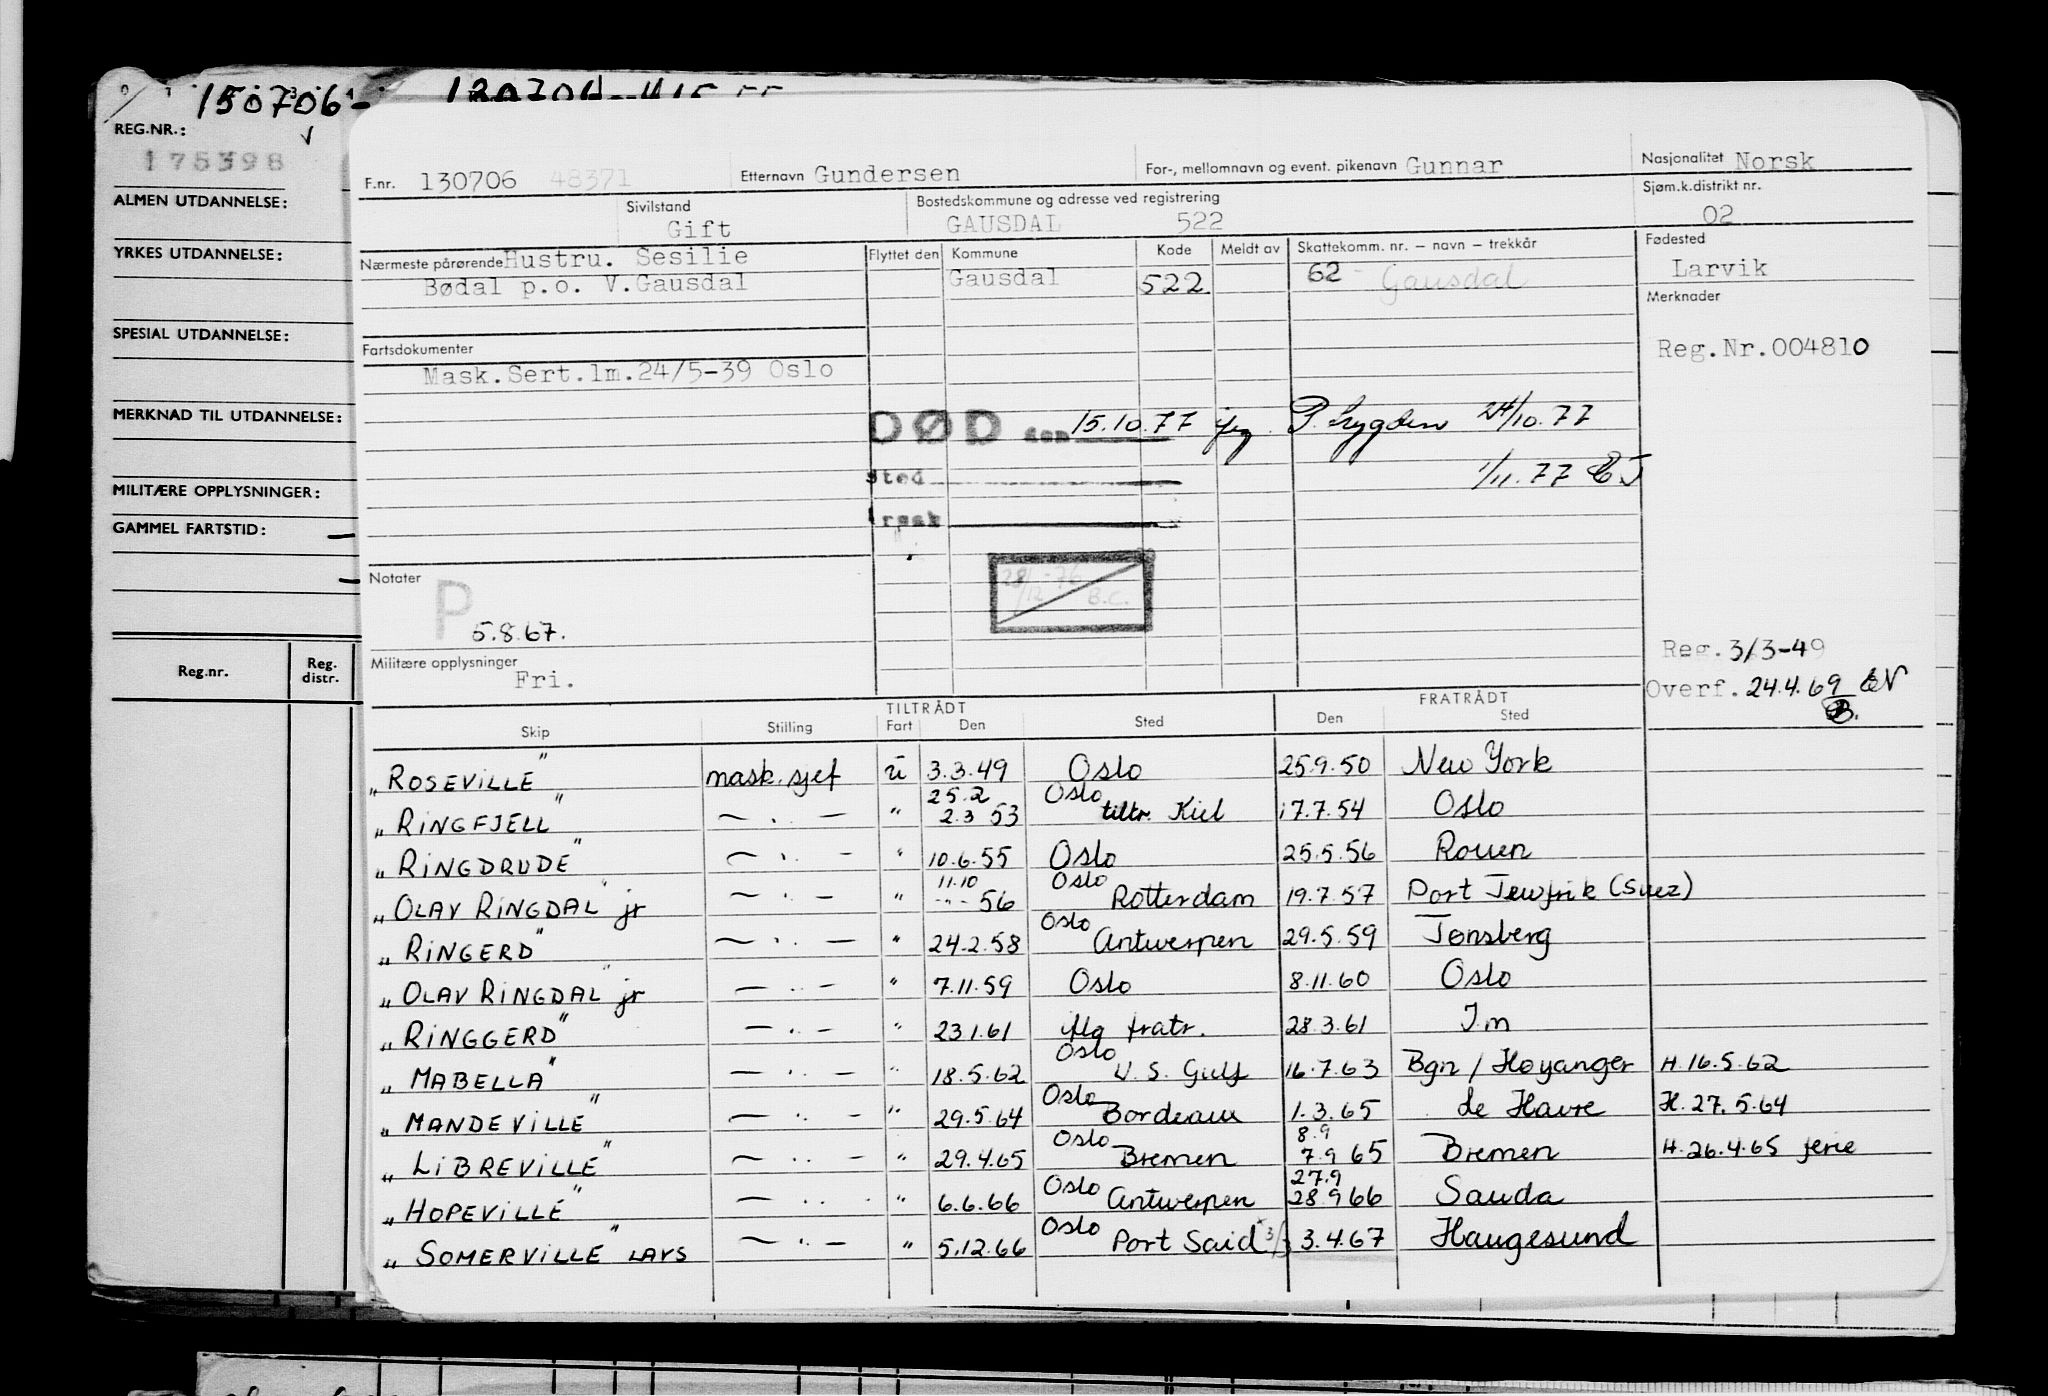 150706-
REG.NR.:
175398
ALMEN UTDANNELSE:
YRKES UTDANNELSE:
SPESIAL UTDANNELSE:
MERKNAD TIL UTDANNELSE:
MILITÆRE OPPLYSNINGER:
GAMMEL FARTSTID:
Reg.nr. Reg. distr.
F.nr. 130706 48371 Etternavn Gundersen For-, mellomnavn og event. pikenavn Gunnar Nasjonalitet Norsk
Sivilstand Gift Bostedskommune og adresse ved registrering GAUSDAL 522 Sjøm.k.distrikt nr. 02
Nærmeste pårørende Hustru. Sesilie
Bødal p.o. V.Gausdal
Flyttet den Kommune Kode Meldt av Skattekomm. nr. – navn – trekkår Fødested
Gausdal 522 62 - Gausdal Larvik
Merknader
Reg.Nr.004810
Fartsdokumenter
Mask.Sert.lm.24/5-39 Oslo
DØD den 15.10.77 P.trygden 24/10.77
sted 1/11.77
Notater
P 5.8.67.
28/12-76 B.C.
Militære opplysninger
Fri.
Reg. 3/3-49
Overf. 24.4.69
TILTRÅDT FRATRÅDT
Skip Stilling Fart Den Sted Den Sted
"ROSEVILLE" mask.sjef u 3.3.49 Oslo 25.9.50 New York
"RINGFJELL" — . — " 25.2 2.3 53 Oslo tiltr. Kiel 17.7.54 Oslo
"RINGDRUDE" — . — " 10.6.55 Oslo 25.5.56 Rouen
"OLAV RINGDAL" jr — . — " 11.10 -"- 56 Oslo Rotterdam 19.7.57 Port Tewfik (Suez)
"RINGERD" — . — " 24.2.58 Oslo Antwerpen 29.5.59 Tønsberg
"OLAV RINGDAL" jr — . — " 7.11.59 Oslo 8.11.60 Oslo
"RINGGERD" — . — " 23.1.61 iflg fratr. 28.3.61 I.m
"MABELLA" — . — " 18.5.62 Oslo U.S. Gulf 16.7.63 Bgn / Høyanger H.16.5.62
"MANDEVILLE" — . — " 29.5.64 Oslo Bordeaux 1.3.65 le Havre H.27.5.64
"LIBREVILLE" — . — " 29.4.65 Oslo Bremen 8.9 7.9 65 Bremen H.26.4.65 ferie
"HOPEVILLE" — . . " 6.6.66 Oslo Antwerpen 27.9 28.9 66 Sauda
"SOMERVILLE" LAVS — . — " 5.12.66 Oslo Port Said 3/3 3.4.67 Haugesund